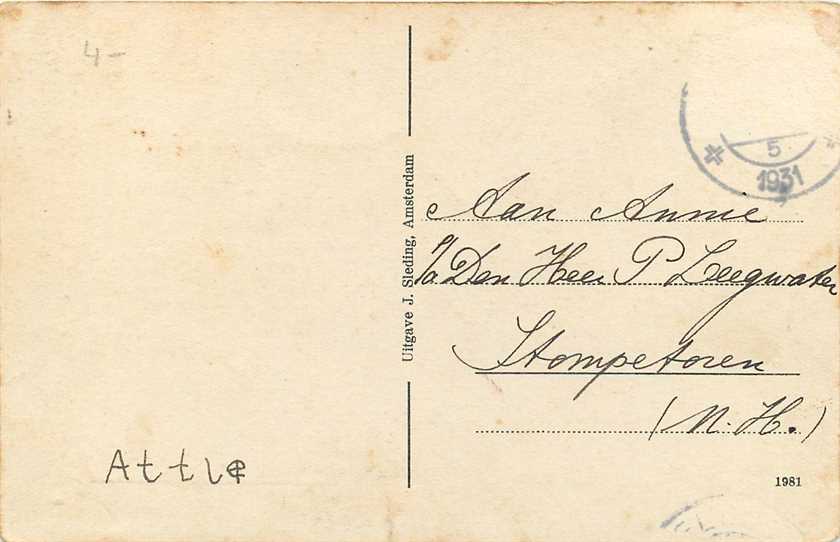 4-
5
1931
Uitgave J. Sleding, Amsterdam
Aan Annie
p/a Den Heer P Leegwater
Stompetoren
(N. H.)
1981